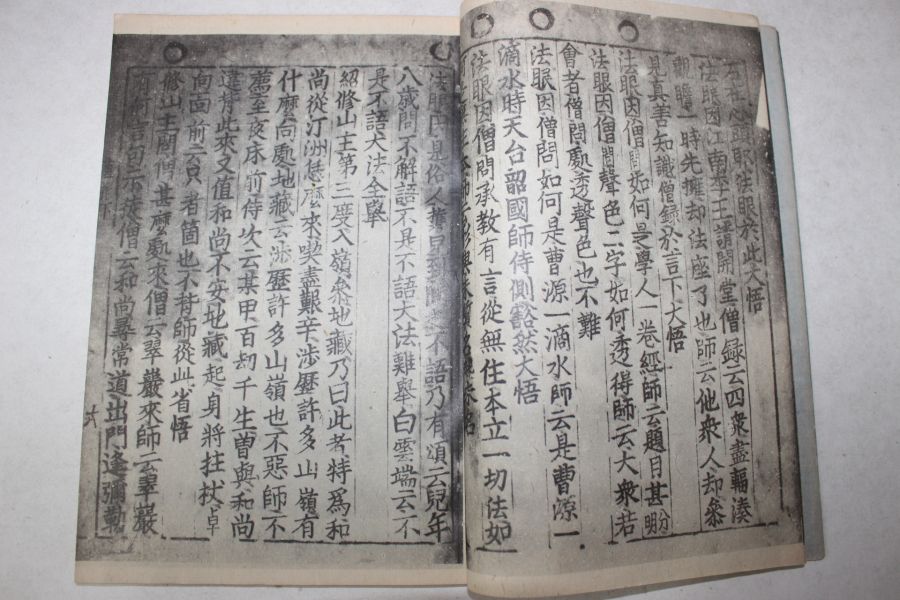 石在心頭耶法眼於此大悟
法眼因江南李王請開堂僧録云四衆盡輻湊
觀瞻一時先擁却法座了也師云他衆人却叅
見真善知識僧録於言下大悟
法眼因僧問如何是學人一卷經師云題目甚分明
法眼因僧問聲色二字如何透得師云大衆若
會者僧問處透聲色也不難
法眼因僧問如何是曹源一滴水師云是曹源一
滴水時天台韶國師侍側豁然大悟
法眼因僧問承教有言從無住本立一切法如
法眼因見俗人
不語乃有頌云兒年
八歲問不解語不是不語大法難舉白雲端云不
是不語大法全舉
紹修山主第三度入嶺叅地藏乃曰此者特爲和
尚從汀洲恁麼來喫盡艱辛涉歷許多山嶺有
什麼向處地藏云涉歷許多山嶺也不惡師不
薦至夜床前侍次云某甲百劫千生曽與和尚
違背此來又值和尚不安地藏起身將拄杖卓
向面前云只者箇也不背師從此省悟
修山主問僧甚麼處來僧云翠巖來師云翠巖
有何言句示徒僧云和尚尋常道出門逢彌勒